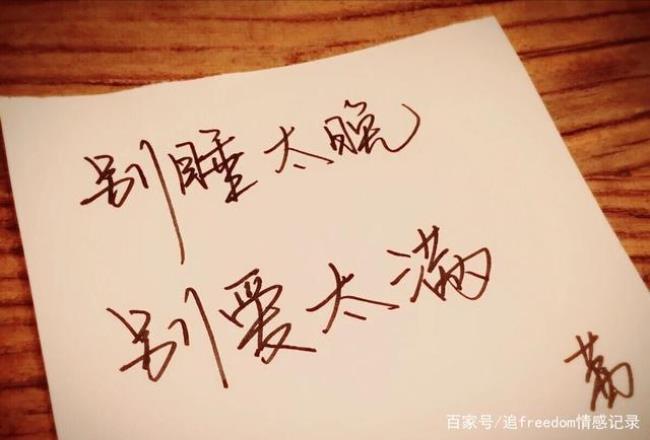 别睡太晚
别爱太满
百家号/追freedom情感记录